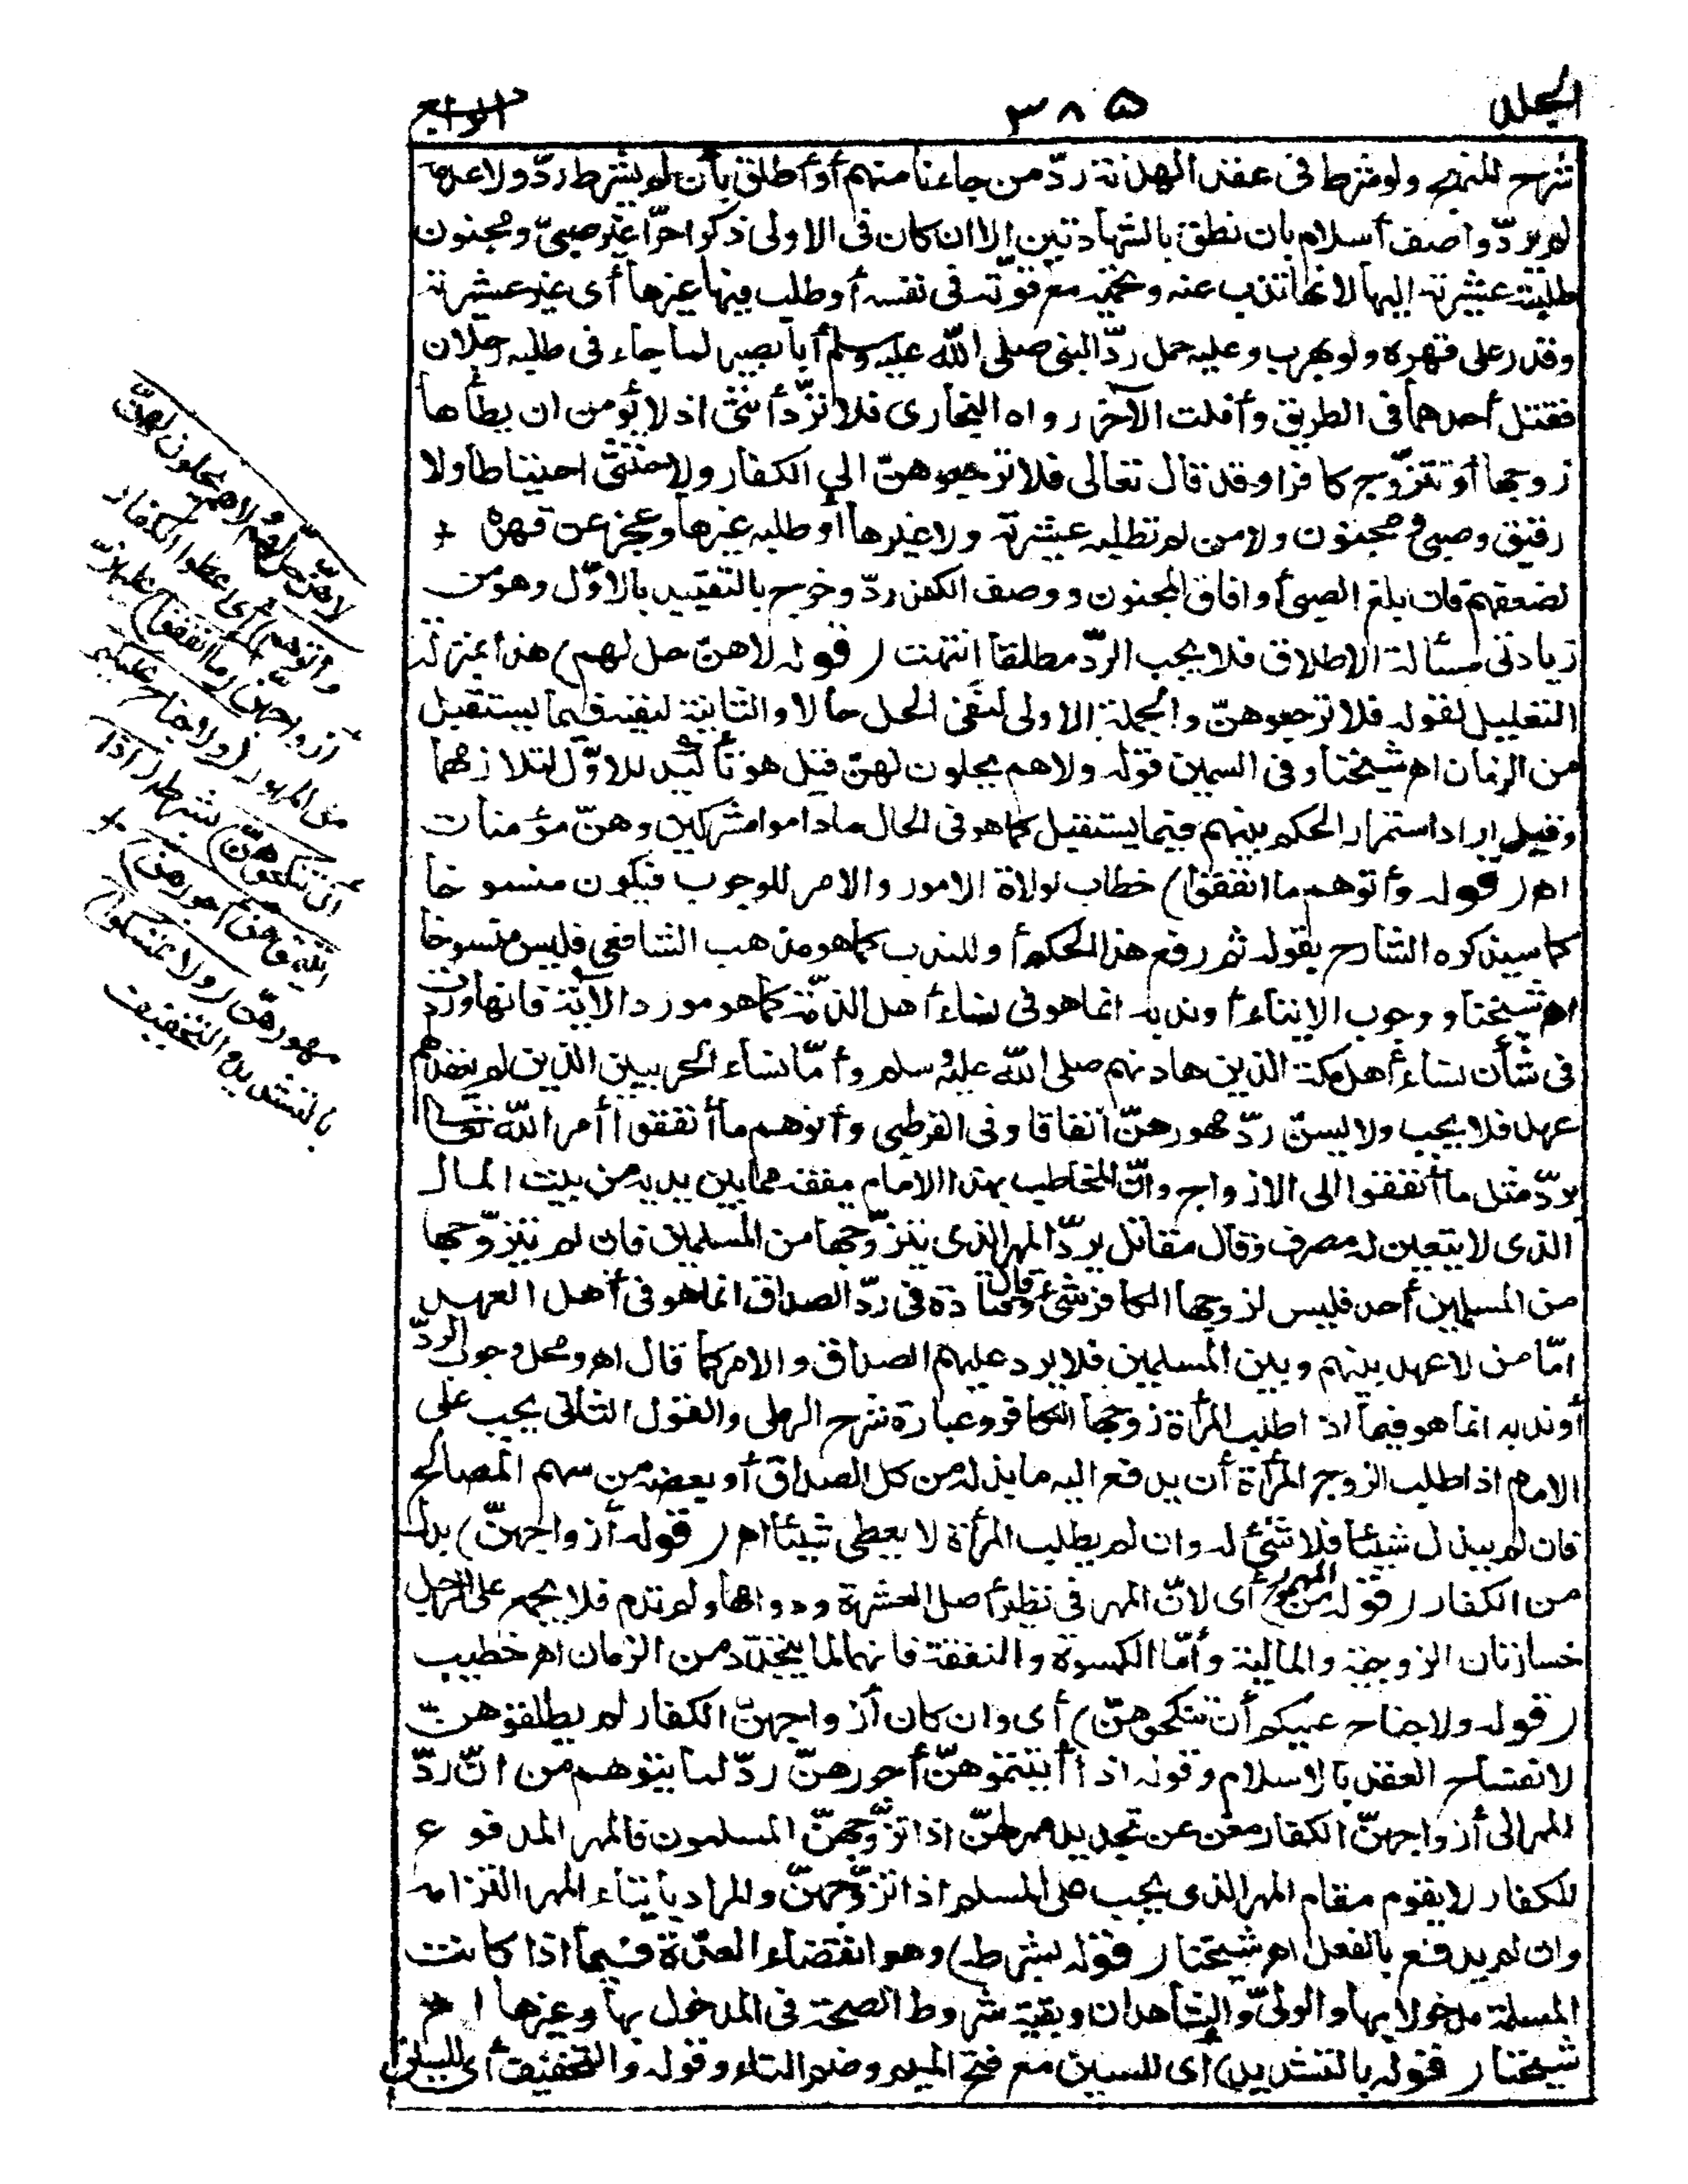 المجلد ٣٨٥ الرابع
شرح المنهج ولو شرط فى عقد الهدنة ردّ من جاءنا منهم أو أطلق بأن لم يشرط ردّ ولا عدمه
لم يردّ واصف أسلام بان نطق بالشهادتين إلا ان كان فى الاولى ذكرا حرّا غير صبىّ ومجنون
طلبته عشيرته إليها لانها تذب عنه وتحميه مع قوّته فى نفسه أو طلب فيها غيرها أى غير عشيرته
وقدر على قهره ولو بهرب وعليه حمل ردّ النبى صلى الله عليه وسلم أبا بصير لما جاء فى طلبه رجلان
فقتل أحدهما فى الطريق وأفلت الآخر رواه البخارى فلا تردّ أنثى اذ لا يؤمن ان يطأها
زوجها أو تتزوّج كافرا وقد قال تعالى فلا ترجعوهنّ الى الكفار ولا خنثى احتياطا ولا
رقيق وصبى ومجنون ولا من لم تطلبه عشيرته ولا غيرها أو طلبه غيرها وعجز عن قهره
لضعفهم فان بلغ الصبى أو افاق المجنون ووصف الكفر ردّ وخرج بالتقييد بالاوّل وهو من
زيادتى مسألة الاطلاق فلا يجب الردّ مطلقا انتهت (قوله لا هنّ حل لهم) هذا بمنزلة
التعليل لقوله فلا ترجعوهنّ والجملة الاولى لنفى الحل حالا والثانية لنفيه فيما يستقبل
من الزمان اه شيخنا وفى السمين قوله ولا هم يحلون لهنّ قيل هو تأكيد للاوّل لتلازمهما
وقيل اراد استمرار الحكم بينهم فيما يستقبل كما هو فى الحال ما داموا مشركين وهنّ مؤمنات
اه (قوله وأتوهم ما انفقوا) خطاب لولاة الامور والامر للوجوب فيكون منسوخا
كما سيذكره الشارح بقوله ثم رفع هذا الحكم أو للندب كما هو مذهب الشافعى فليس منسوخا
اه شيخنا ووجوب الايتاء أو ندبه انما هو فى نساء أهل الذمّة كما هو مورد الآية فانها وردت
فى شأن نساء أهل مكة الذين هادنهم صلى الله عليه وسلم وأمّا نساء الحربيين الذين لم يعقد لهم
عهد فلا يجب ولا يسنّ ردّ مهورهنّ اتفاقا وفى القرطبى وأتوهم ما أنفقوا أمر الله تعالى
بردّ مثل ما أنفقوا الى الازواج وانّ المخاطب بهذا الامام ينفقه مما بين يديه من بيت المال
الذى لا يتعين له مصرف وقال مقاتل يردّ المهر الذى يتزوّجها من المسلمين فان لم يتزوّجها
من المسلمين أحد فليس لزوجها الكافر شئ وقال قتادة فى ردّ الصداق انما هو فى أهل العهد
امّا من لا عهد بينهم وبين المسلمين فلا يرد عليهم الصداق والامر كما قال اه ومحل وجوب الردّ
أو ندبه انما هو فيما اذا طلب المرأة زوجها الكافر وعبارة شرح الرملى والقول الثانى يجب على
الامام اذا طلب الزوج المرأة أن يدفع اليه ما بذله من كل الصداق أو بعضه من سهم المصالح
فان لم يبذل شيئا فلا شئ له وان لم يطلب المرأة لا يعطى شيئا اه (قوله أزواجهنّ) بدل
من الكفار (قوله من المهور) أى لانّ المهر فى نظير أصل العشرة ودوامها ولم تدم فلا يجمع على الرجل
خسارتان الزوجية والمالية وأمّا الكسوة والنفقة فانهما لما يتجدّد من الزمان اه خطيب
(قوله ولا جناح عليكم أن تنكحوهنّ) أى وان كان أزواجهنّ الكفار لم يطلقوهنّ
لانفساخ العقد بالاسلام وقوله اذا أتيتموهنّ أجورهنّ ردّ لما يتوهم من انّ ردّ
المهر الى أزواجهنّ الكفار مغن عن تجديد مهر لهنّ اذا تزوّجهنّ المسلمون فالمهر المدفوع
للكفار لا يقوم مقام المهر الذى يجب على المسلم اذا تزوّجهنّ والمراد بأيتاء المهر التزامه
وان لم يدفع بالفعل اه شيخنا (قوله بشرطه) وهو انقضاء العدّة فيما اذا كانت
المسلمة مدخولا بها والولىّ والشاهدان وبقية شروط الصحة فى المدخول بها وغيرها اه
شيخنا (قوله بالتشديد) أى للسين مع فتح الميم وضم التاء وقوله والتخفيف أى للسين
لا هنّ حل لهم ولا هم يحلون لهنّ
وأتوهم) أى اعطوا الكفار
أزواجهنّ (ما انفقوا) عليهنّ
من المهور (ولا جناح عليكم
أن تنكحوهنّ) بشرطه (اذا
أتيتموهنّ أجورهنّ)
مهورهنّ (ولا تمسكوا)
بالتشديد والتخفيف